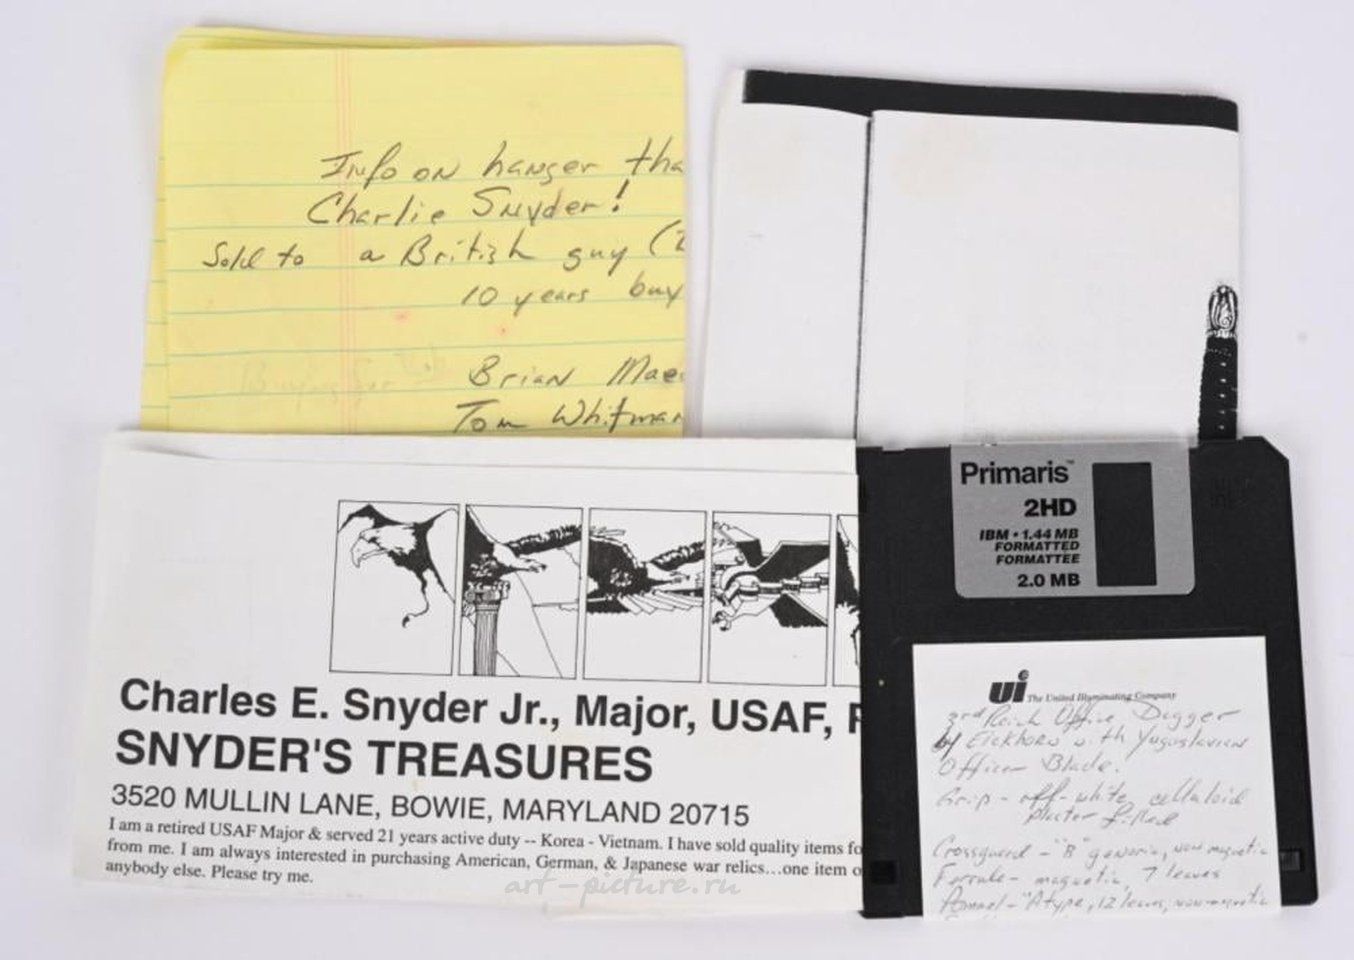 Info on hanger tha
Charlie Snyder!
Sold to a British guy (
10 years buy
Brian Mae
Tom Whitman
Primaris™
2HD
IBM • 1.44 MB
FORMATTED
FORMATTEE
2.0 MB
Charles E. Snyder Jr., Major, USAF, R
SNYDER'S TREASURES
3520 MULLIN LANE, BOWIE, MARYLAND 20715
I am a retired USAF Major & served 21 years active duty -- Korea - Vietnam. I have sold quality items fo
from me. I am always interested in purchasing American, German, & Japanese war relics...one item o
anybody else. Please try me.
ui The United Illuminating Company
3rd Reich Office Dagger
by Eickhorn with Yugoslavian
Officer Blade.
Grip - off-white celluloid
plaster filled
Crossguard - "B" generic, non magnetic
Ferrule - magnetic, 7 leaves
Pommel - "A type, 12 leaves, non-magnetic
art-picture.ru